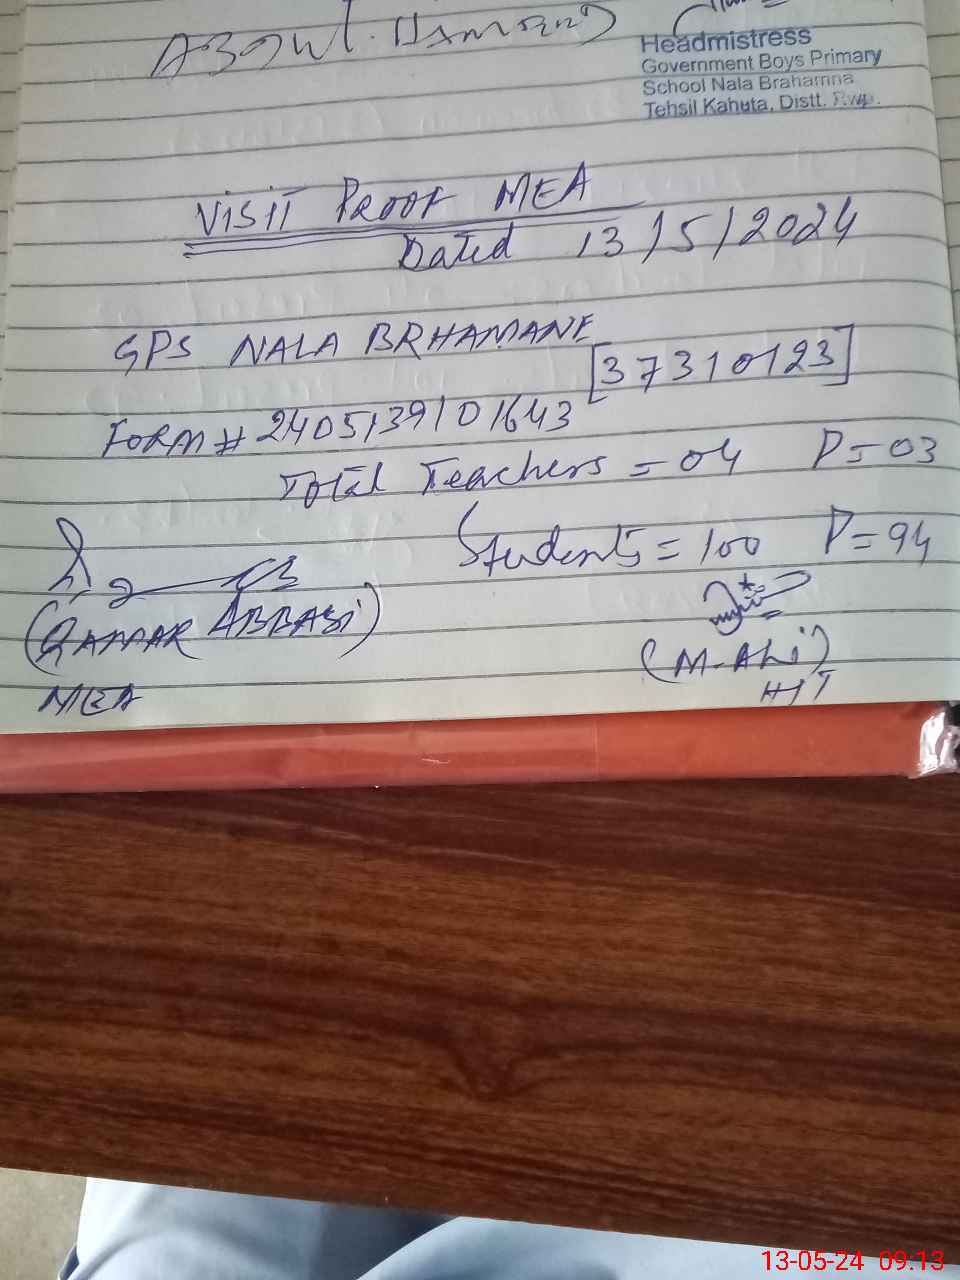 Headmistress
Government Boys Primary
School Nala Brahamna
Tehsil Kahuta, Distt. Rwp.
VISIT PROOF MEA
Dated 13/5/2024
GPS NALA BRHAMANE
[37310123]
FORM # 2405139101643
Total Teachers = 04 P = 03
Students = 100 P = 94
(QAMAR ABBASI)
MEA
(M. ALi)
HT
13-05-24 09:13